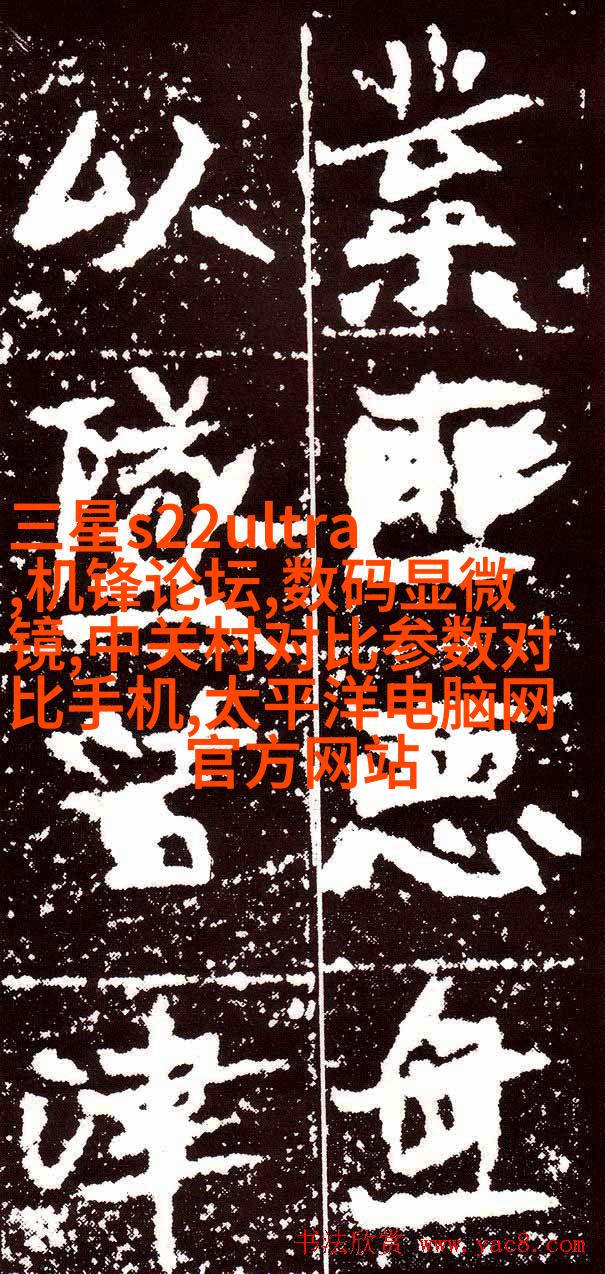 業
以津
三星s22ultra
,机锋论坛,数码显微
镜,中关村对比参数对
比手机,太平洋电脑网
官方网站
书法欣赏 www.yac8.com